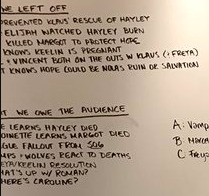 WE LEFT OFF
PREVENTED KLAUS' RESCUE OF HAYLEY
ELIJAH WATCHED HAYLEY BURN
KILLED MARGOT TO PROTECT HOPE
KNOWS KEELIN IS PREGNANT
+ VINCENT BOTH ON THE OUTS W/ KLAUS (+ FREYA)
T KNOWS HOPE COULD BE NOLA'S RUIN OR SALVATION
T WE OWE THE AUDIENCE
E LEARNS HAYLEY DIED
OINETTE LEARNS MARGOT DIED
GUE FALLOUT FROM 506
MPS + WOLVES REACT TO DEATHS
EYA/KEELIN RESOLUTION
HAT'S UP W/ ROMAN?
HERE'S CAROLINE?
A: Vamp
B:
C: Freya